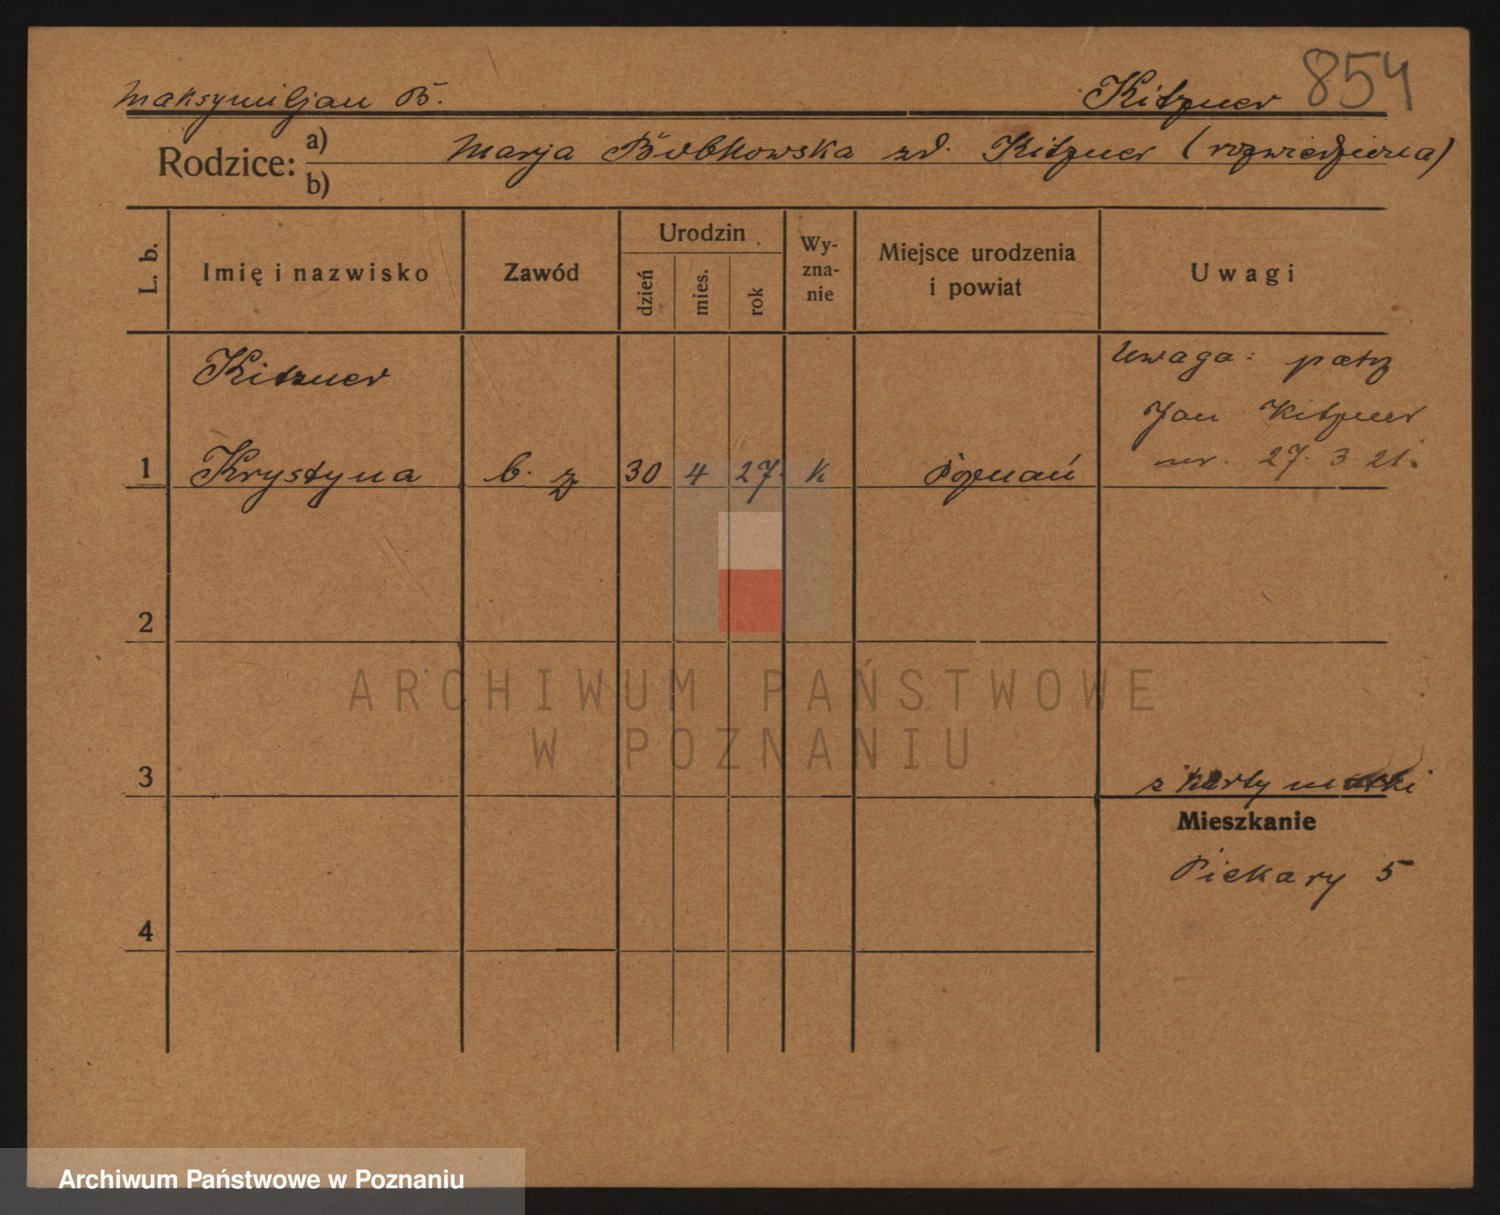 Maksymiljan B. Kitzner 854
Rodzice: a) Marja Bobkowska zd. Kitzner (rozwiedziona)
b)
L. b. Imię i nazwisko Zawód Urodzin dzień mies. rok Wy-zna-nie Miejsce urodzenia i powiat Uwagi
Kitzner Uwaga: patrz
Jan Kitzner
1 Krystyna b. z 30 4 27. K Poznań ur. 27. 3. 21.
2
ARCHIWUM PAŃSTWOWE
W POZNANIU
3 z karty matki
Mieszkanie
Piekary 5
4
Archiwum Państwowe w Poznaniu